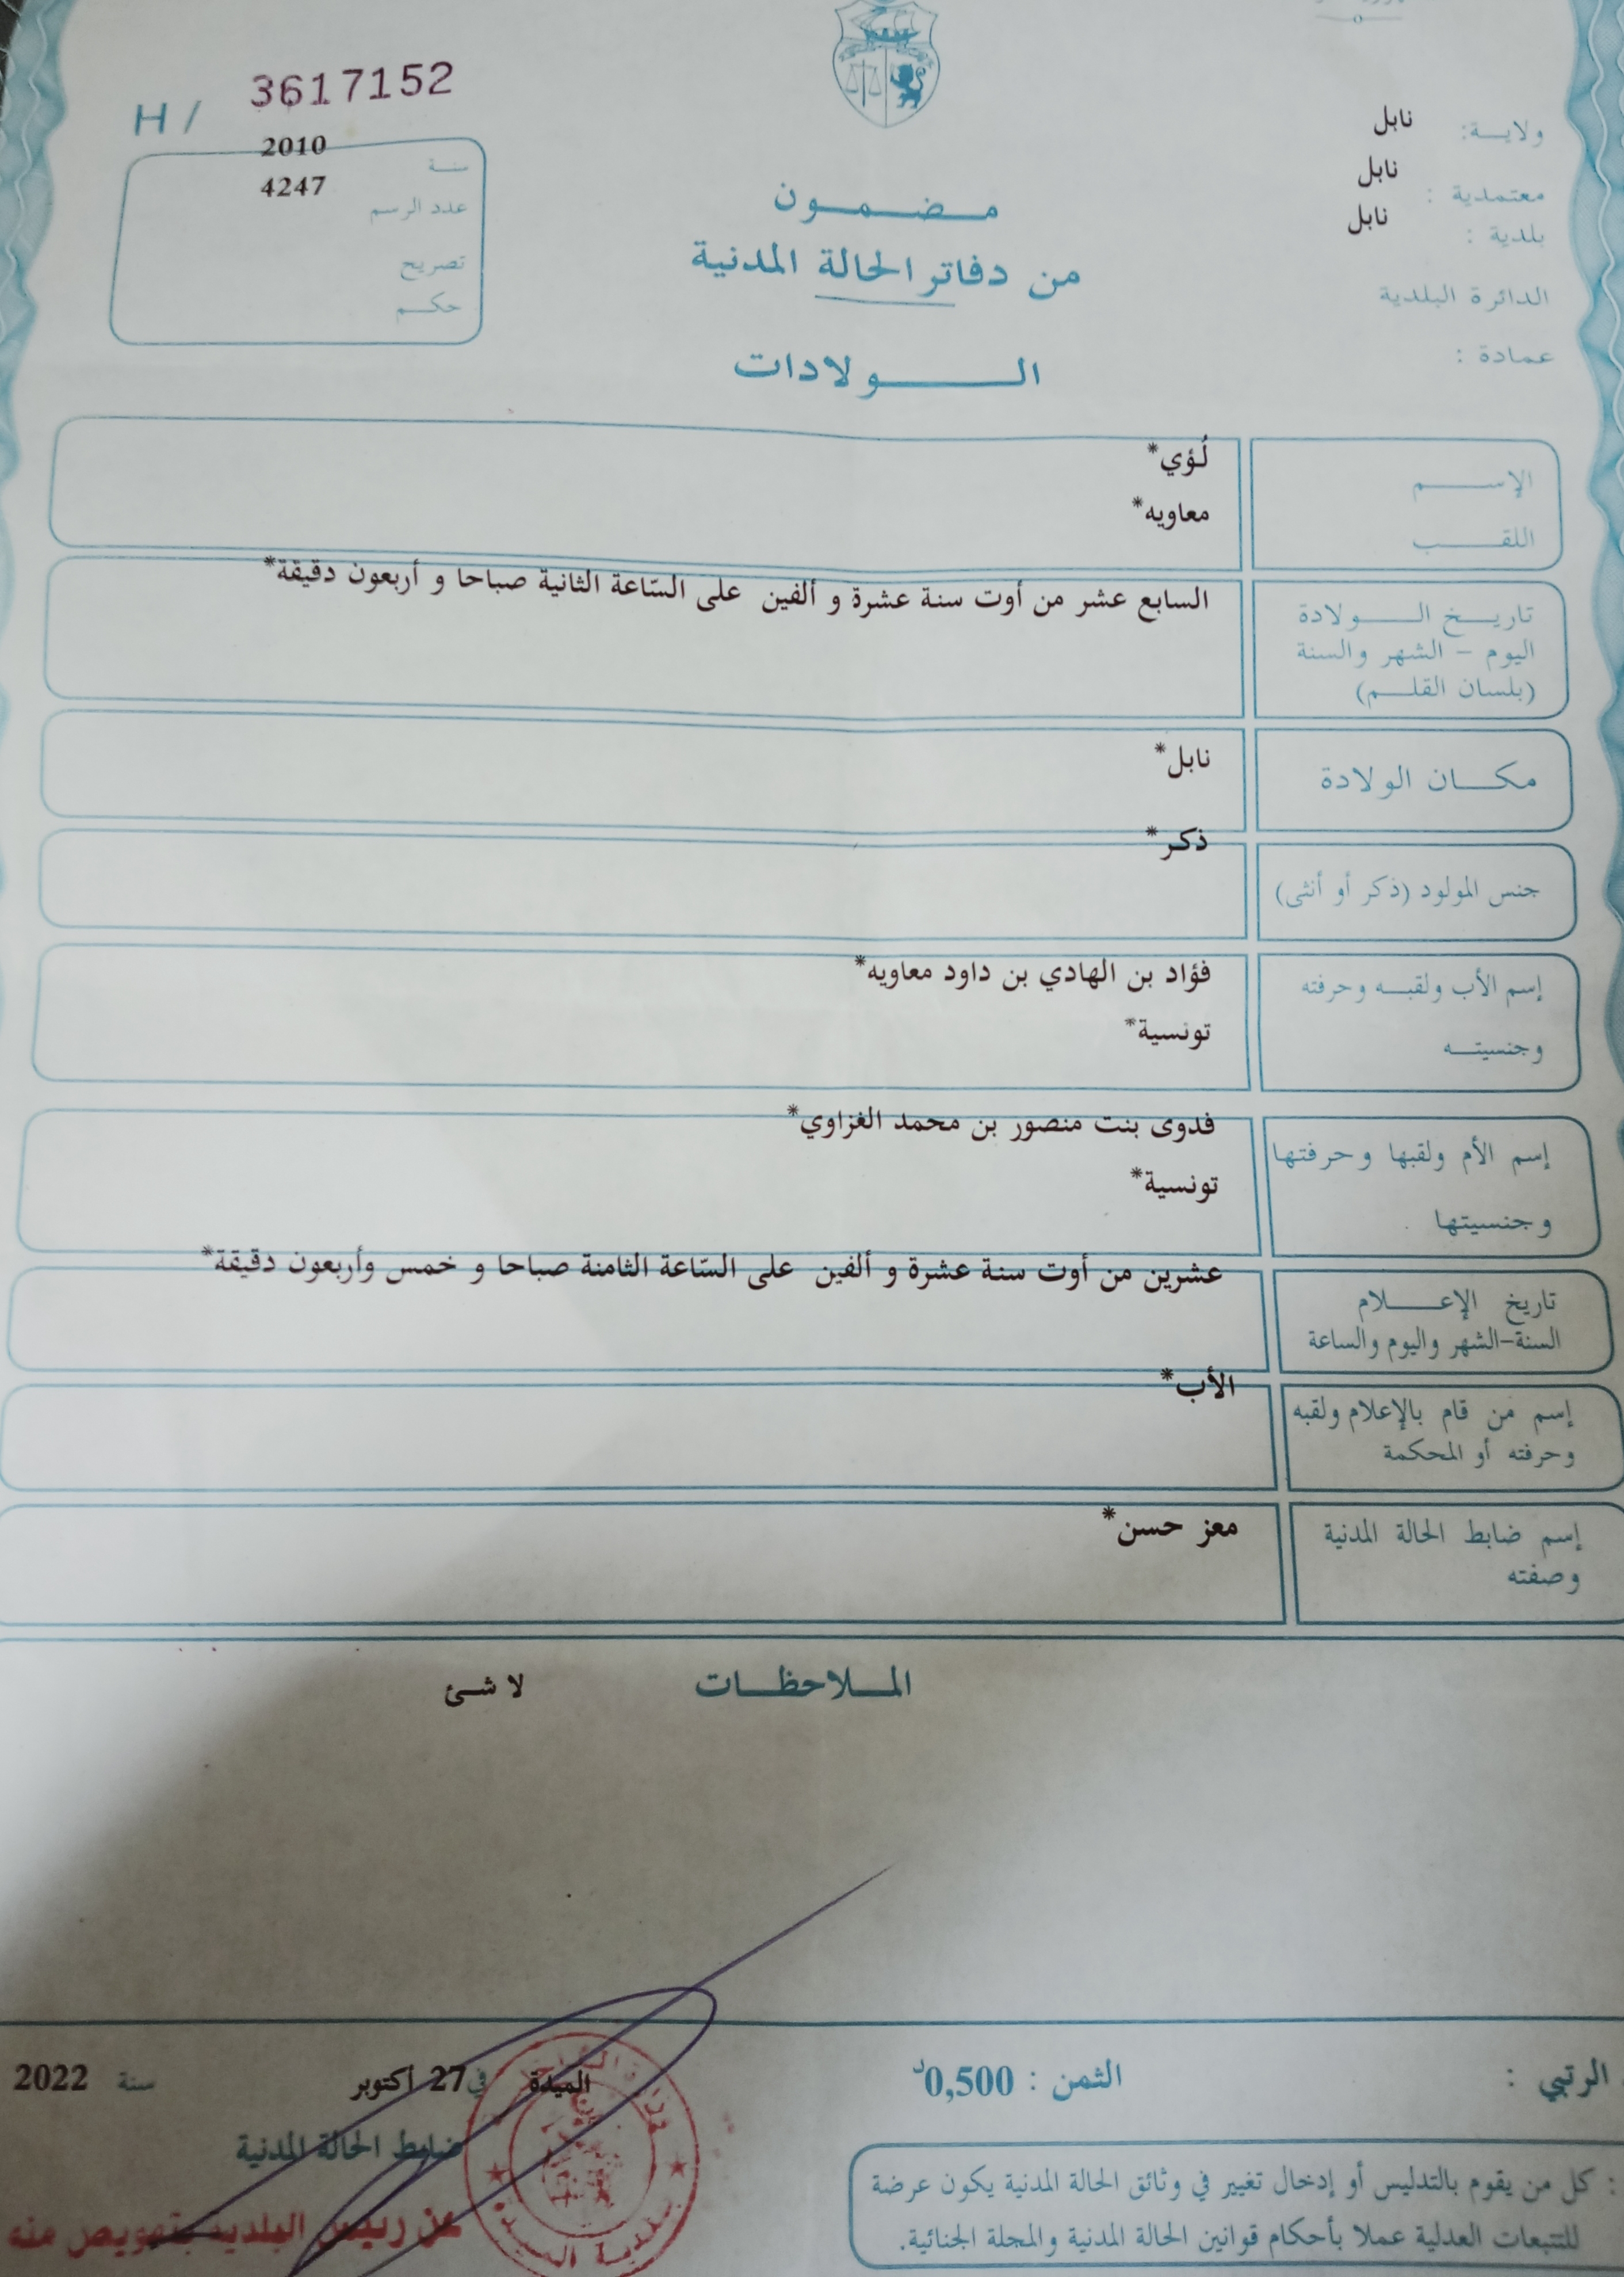 H / 3617152
ولايـة: نابل
معتمدية : نابل
بلدية : نابل
الدائرة البلدية
عمادة :
سنـة 2010
عدد الرسم 4247
تصريح
حكـم
مـضـمـون
من دفاتر الحالة المدنية
الـولادات
الإسـم لُؤي*
اللقـب معاويه*
تاريـخ الـولادة
اليوم – الشهر والسنة
(بلسان القلـم)
السابع عشر من أوت سنة عشرة و ألفين على السّاعة الثانية صباحا و أربعون دقيقة*
مكـان الولادة نابل*
جنس المولود (ذكر أو أنثى) ذكر*
إسم الأب ولقبـه وحرفته فؤاد بن الهادي بن داود معاويه*
وجنسيتـه تونسية*
إسم الأم ولقبها وحرفتها فدوى بنت منصور بن محمد الغزاوي*
وجنسيتها تونسية*
تاريخ الإعـلام
السنة-الشهر واليوم والساعة
عشرين من أوت سنة عشرة و ألفين على السّاعة الثامنة صباحا و خمس وأربعون دقيقة*
إسم من قام بالإعلام ولقبه
وحرفته أو المحكمة
الأب*
إسم ضابط الحالة المدنية
وصفته
معز حسن*
المـلاحظـات لا شئ
الرتبي :
الثمن : 0,500د
الميدة في 27 أكتوبر سنة 2022
ضابط الحالة المدنية
عن رئيس البلدية بتفويض منه
: كل من يقوم بالتدليس أو إدخال تغيير في وثائق الحالة المدنية يكون عرضة
للتتبعات العدلية عملا بأحكام قوانين الحالة المدنية والمجلة الجنائية.